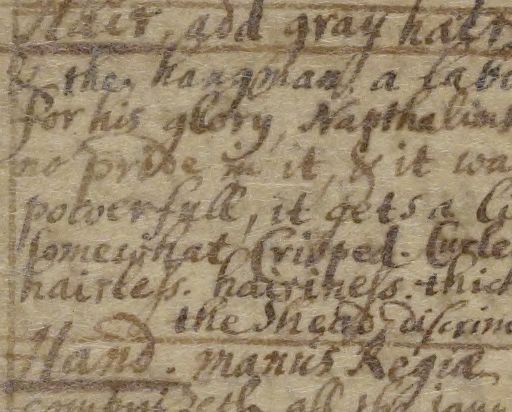 Hair, god gray hair
& the hangman, a labo
for his glory, Napthalins
no pride in it, & it wa
powerfull, it gets a
somewhat Crisped. Curle
hairless. hairiness. thick
the head, discrim
Hand. manus Regia
all the